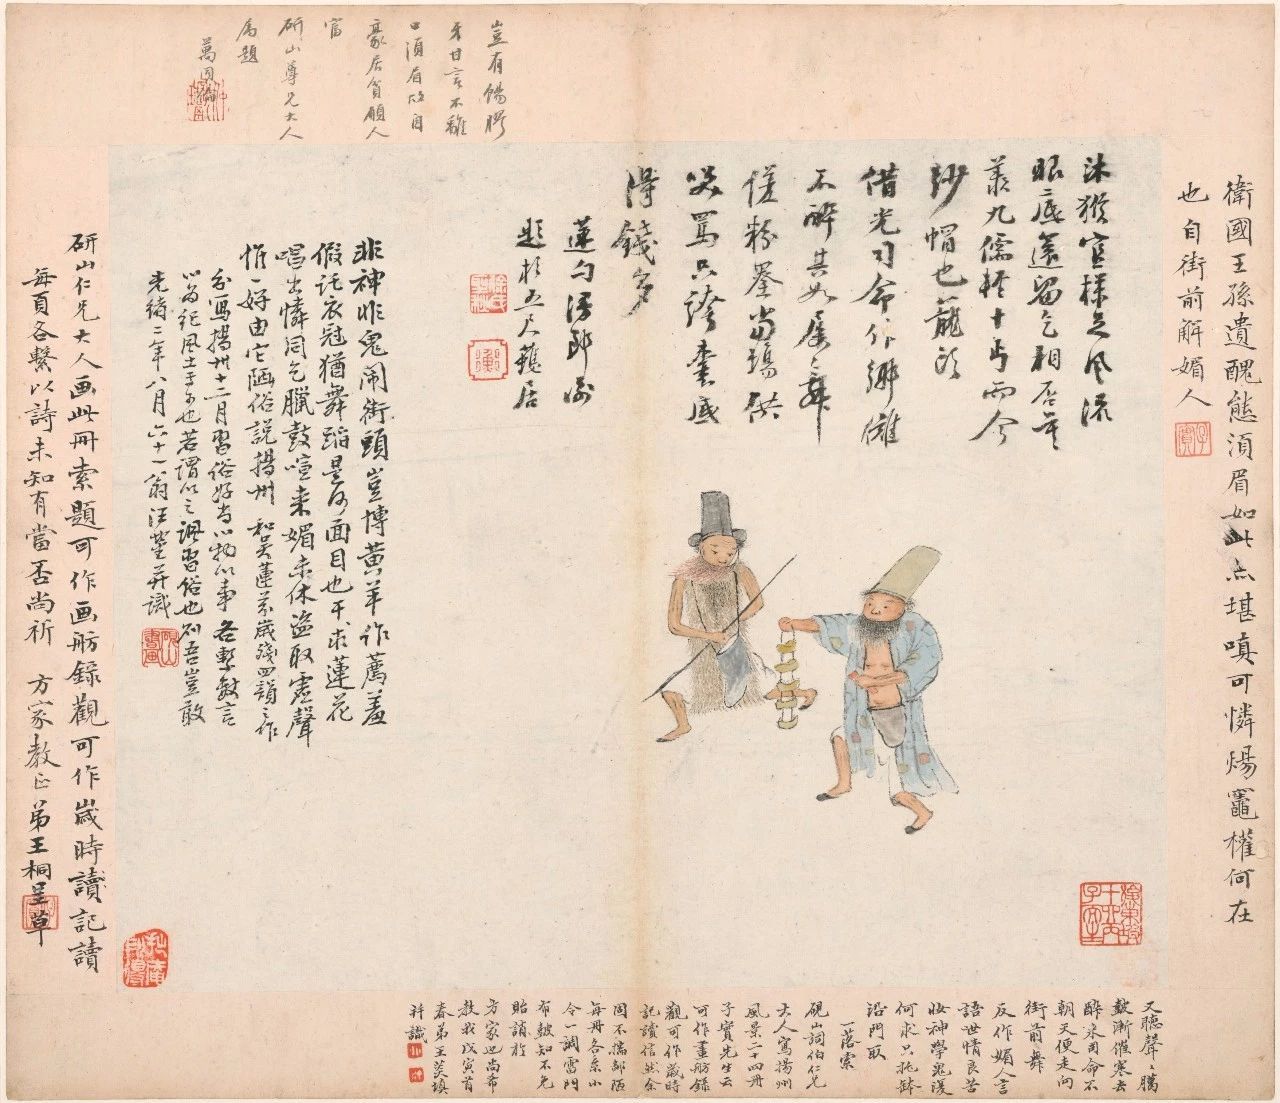 衛國王孫遺醜態須眉如此亦堪嗔可憐煬竈權何在
也自街前解媚人
豈有餳膠
牙甘言不雜
口須眉故自
豪居貧願人
富
研山尊兄大人
屬題
萬同倫
沐猴官樣足風流
眼底還留乞相否笑
羨九儒輕十丐而今
紗帽也籠頭
借光司命作鄉儺
不醉其如屢舞
傞粉墨當場供
笑罵只誇囊底
得錢多
蓮勺漫郎
題於
非神非鬼鬧街頭豈博黃羊作薦羞
假託衣冠猶舞蹈是何面目也干求蓮花
唱出憐同乞臘鼓喧來媚未休盜取虛聲
惟一好由它陋俗說揚州 和吳蓮芬歲殘四韻之作
余寫揚州十二月習俗好尚以物以事各繫數言
以為紀風土云爾也若謂以之諷習俗也則吾豈敢
光緒二年八月六十一翁汪鋆并識
研山仁兄大人画此冊索題可作画舫錄觀可作歲時讀記讀
每頁各繫以詩未知有當否尚祈 方家教正弟王桐呈草
又聽聲聲臘
鼓漸催寒去
醉來司命不
朝天便走向
街前舞
反作媚人言
語世情良苦
妝神學鬼漫
何求只托缽
沿門取
一落索
硯山詞伯仁兄
大人寫揚州
風景二十四冊
子實先生云
可作畫舫錄
觀可作歲時
記讀信然余
固不揣鄙陋
每冊各系小
令一調雷門
布鼓知不免
貽誚於
方家也尚希
教我戊寅首
春弟王菼填
并識